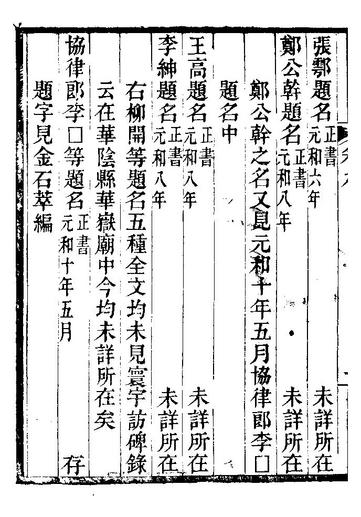 張鄂題名正書元和六年 未詳所在
鄭公幹題名正書元和八年 未詳所在
鄭公幹之名又見元和十年五月協律郎李囗
題名中
王高題名正書元和八年 未詳所在
李紳題名正書元和八年 未詳所在
右柳開等題名五種全文均未見寰宇訪碑錄
云在華陰縣華嶽廟中今均未詳所在矣
協律郎李囗等題名正書元和十年五月 存
題字見金石萃編